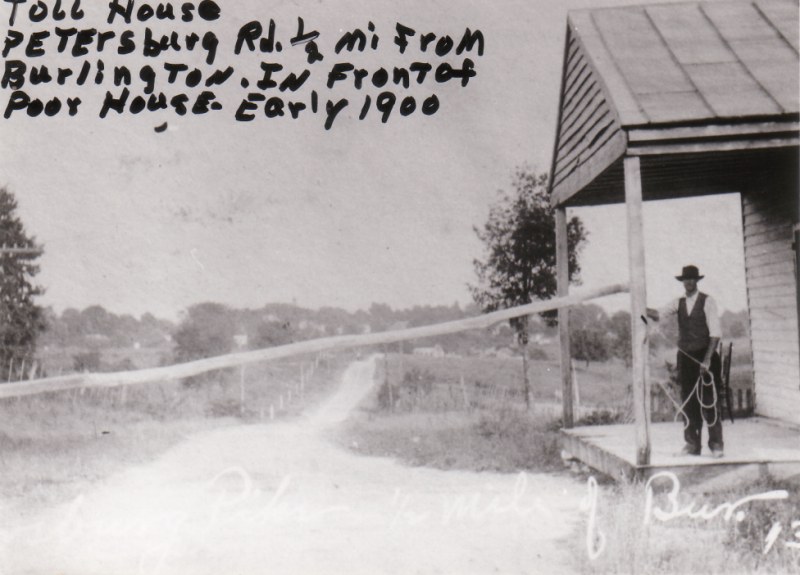 Toll House
PETERSburg Rd. 1/2 mi From
BurlingTon. IN FronT of
Poor House- Early 1900
Pike - 1/2 Mile of Bur.
13